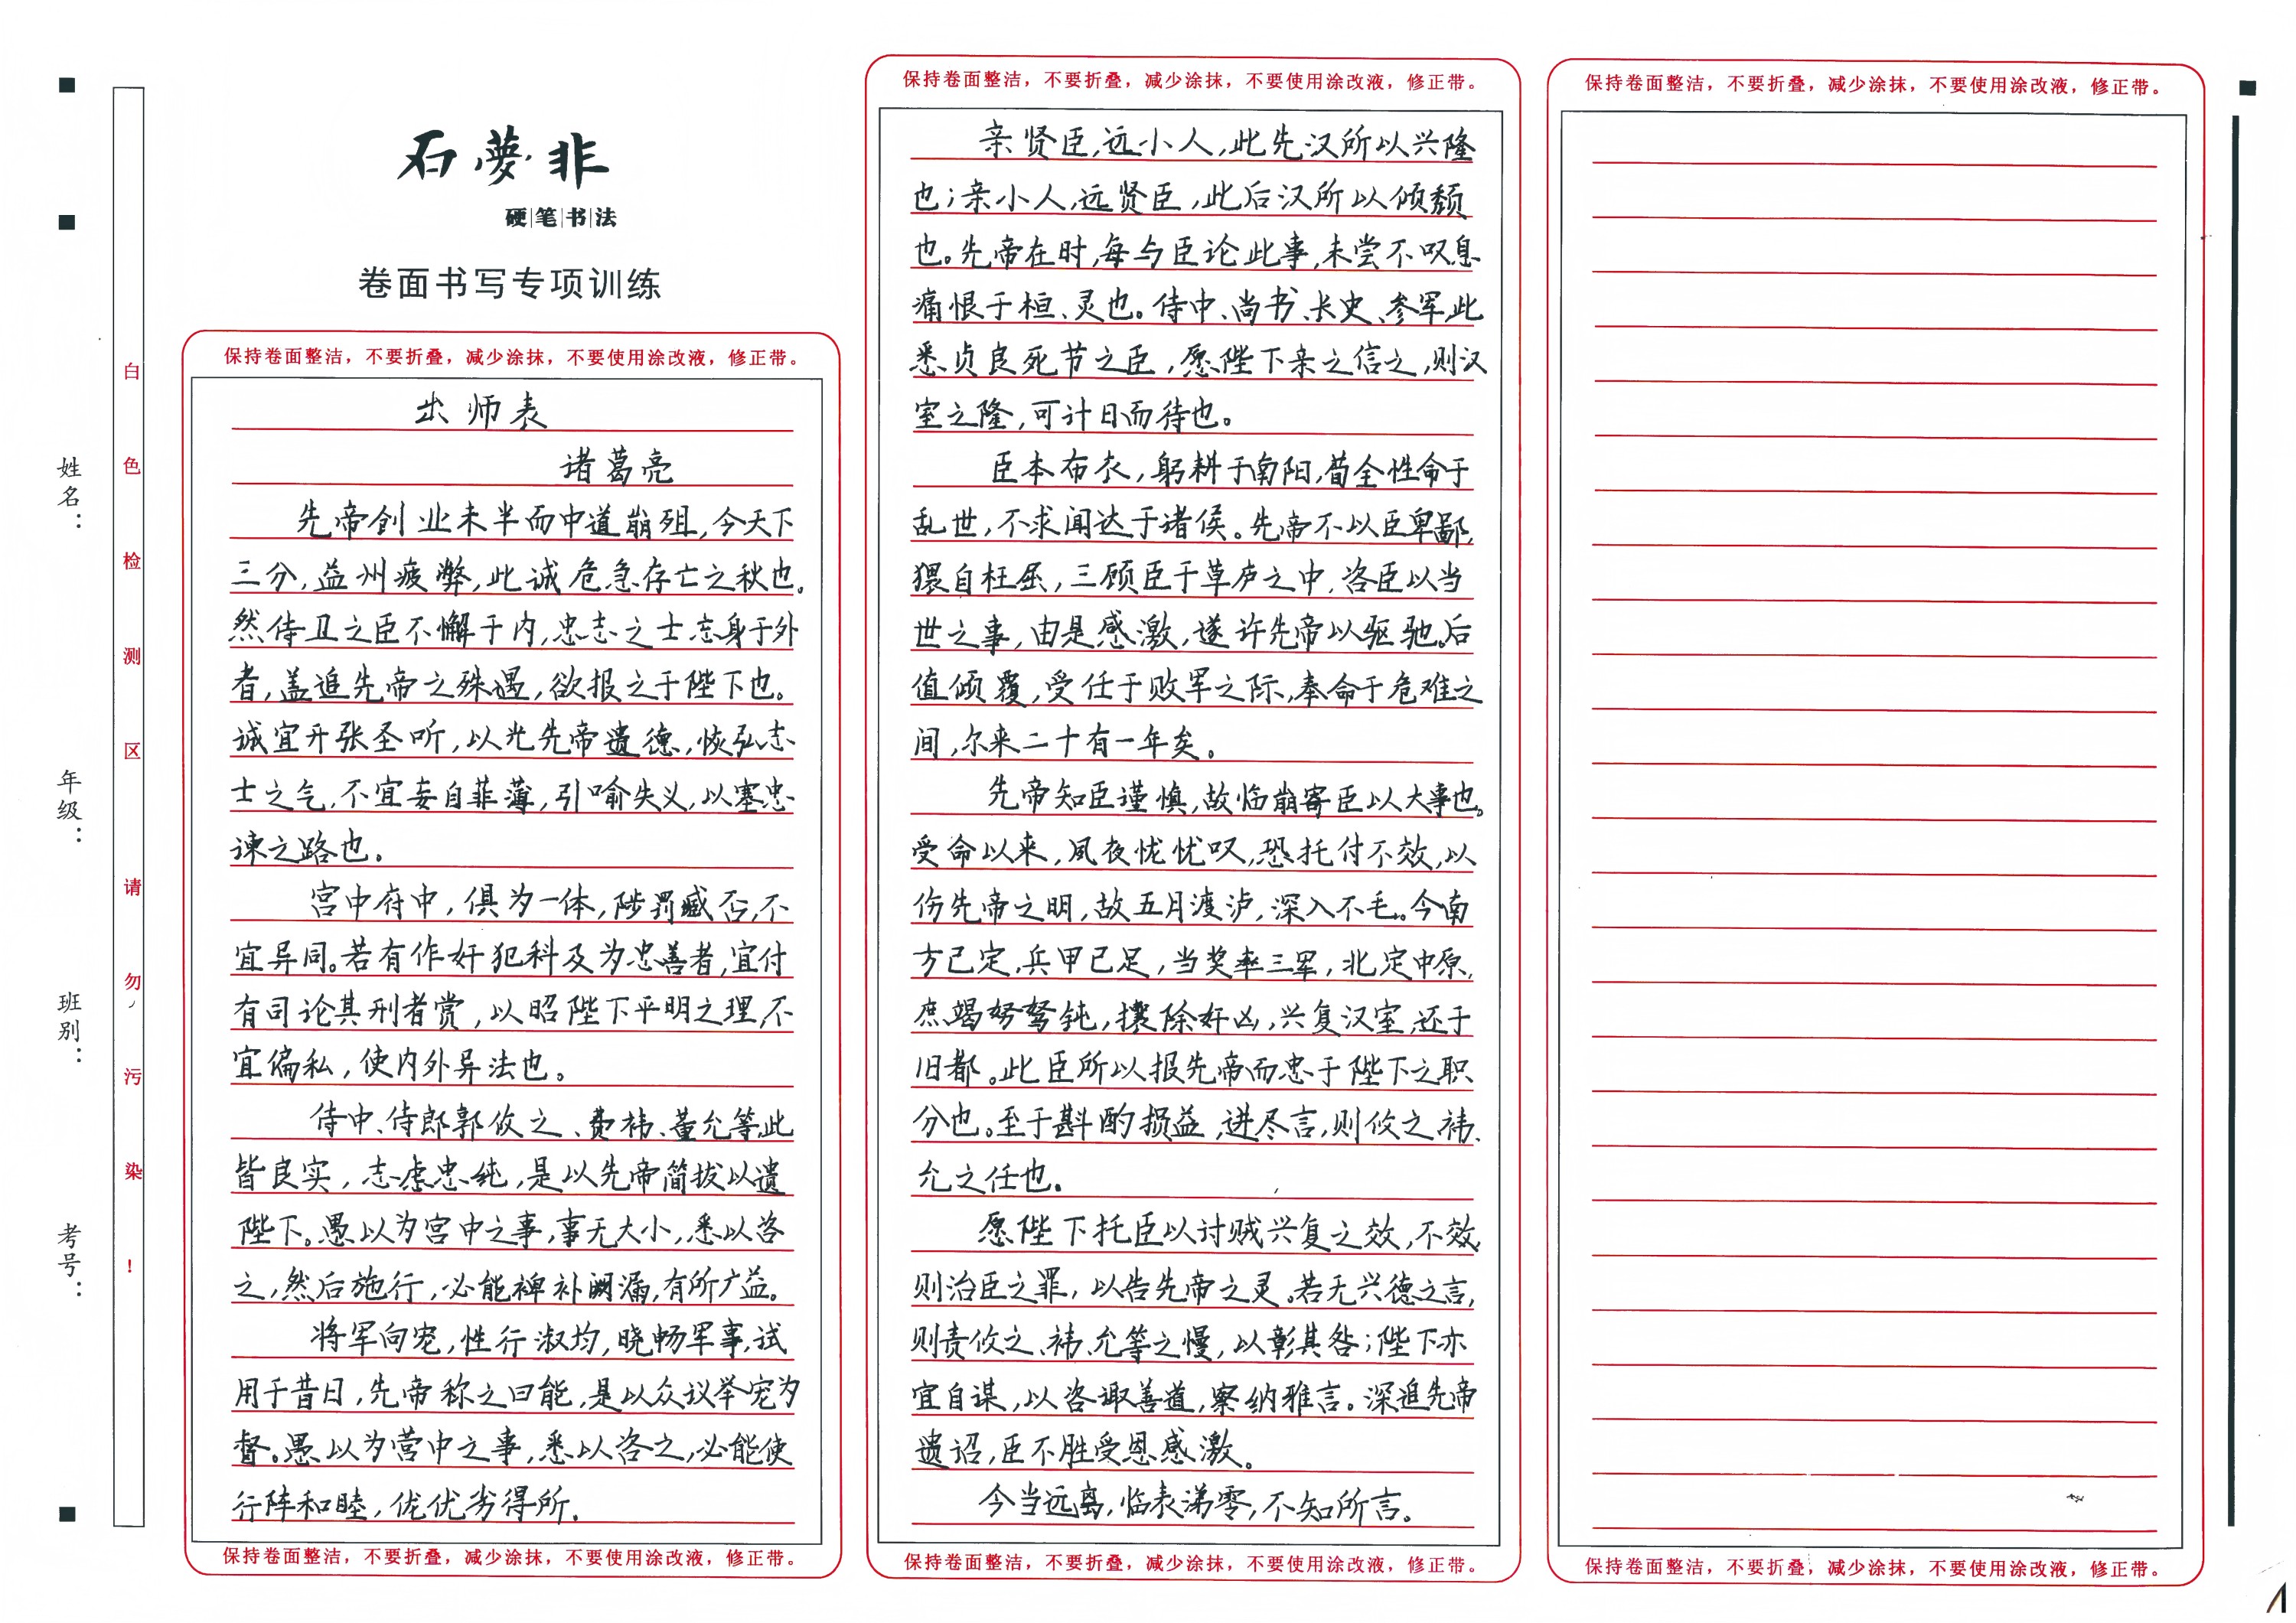 石梦非
硬笔书法
卷面书写专项训练
姓名：
年级：
班别：
考号：
白色检测区请勿污染！
保持卷面整洁，不要折叠，减少涂抹，不要使用涂改液，修正带。
出师表
诸葛亮
先帝创业未半而中道崩殂，今天下
三分，益州疲弊，此诚危急存亡之秋也。
然侍卫之臣不懈于内，忠志之士忘身于外
者，盖追先帝之殊遇，欲报之于陛下也。
诚宜开张圣听，以光先帝遗德，恢弘志
士之气，不宜妄自菲薄，引喻失义，以塞忠
谏之路也。
宫中府中，俱为一体，陟罚臧否，不
宜异同。若有作奸犯科及为忠善者，宜付
有司论其刑者赏，以昭陛下平明之理，不
宜偏私，使内外异法也。
侍中、侍郎郭攸之、费祎、董允等，此
皆良实，志虑忠纯，是以先帝简拔以遗
陛下。愚以为宫中之事，事无大小，悉以咨
之，然后施行，必能裨补阙漏，有所广益。
将军向宠，性行淑均，晓畅军事，试
用于昔日，先帝称之曰能，是以众议举宠为
督。愚以为营中之事，悉以咨之，必能使
行阵和睦，优优劣得所。
保持卷面整洁，不要折叠，减少涂抹，不要使用涂改液，修正带。
保持卷面整洁，不要折叠，减少涂抹，不要使用涂改液，修正带。
亲贤臣，远小人，此先汉所以兴隆
也；亲小人，远贤臣，此后汉所以倾颓
也。先帝在时，每与臣论此事，未尝不叹息
痛恨于桓、灵也。侍中、尚书、长史、参军，此
悉贞良死节之臣，愿陛下亲之信之，则汉
室之隆，可计日而待也。
臣本布衣，躬耕于南阳，苟全性命于
乱世，不求闻达于诸侯。先帝不以臣卑鄙，
猥自枉屈，三顾臣于草庐之中，咨臣以当
世之事，由是感激，遂许先帝以驱驰。后
值倾覆，受任于败军之际，奉命于危难之
间，尔来二十有一年矣。
先帝知臣谨慎，故临崩寄臣以大事也。
受命以来，夙夜忧忧叹，恐托付不效，以
伤先帝之明，故五月渡泸，深入不毛。今南
方已定，兵甲已足，当奖率三军，北定中原，
庶竭努驽钝，攘除奸凶，兴复汉室，还于
旧都。此臣所以报先帝而忠于陛下之职
分也。至于斟酌损益，进尽言，则攸之、祎、
允之任也。
愿陛下托臣以讨贼兴复之效，不效，
则治臣之罪，以告先帝之灵。若无兴德之言，
则责攸之、祎、允等之慢，以彰其咎；陛下亦
宜自谋，以咨诹善道，察纳雅言。深追先帝
遗诏，臣不胜受恩感激。
今当远离，临表涕零，不知所言。
保持卷面整洁，不要折叠，减少涂抹，不要使用涂改液，修正带。
保持卷面整洁，不要折叠，减少涂抹，不要使用涂改液，修正带。
保持卷面整洁，不要折叠，减少涂抹，不要使用涂改液，修正带。